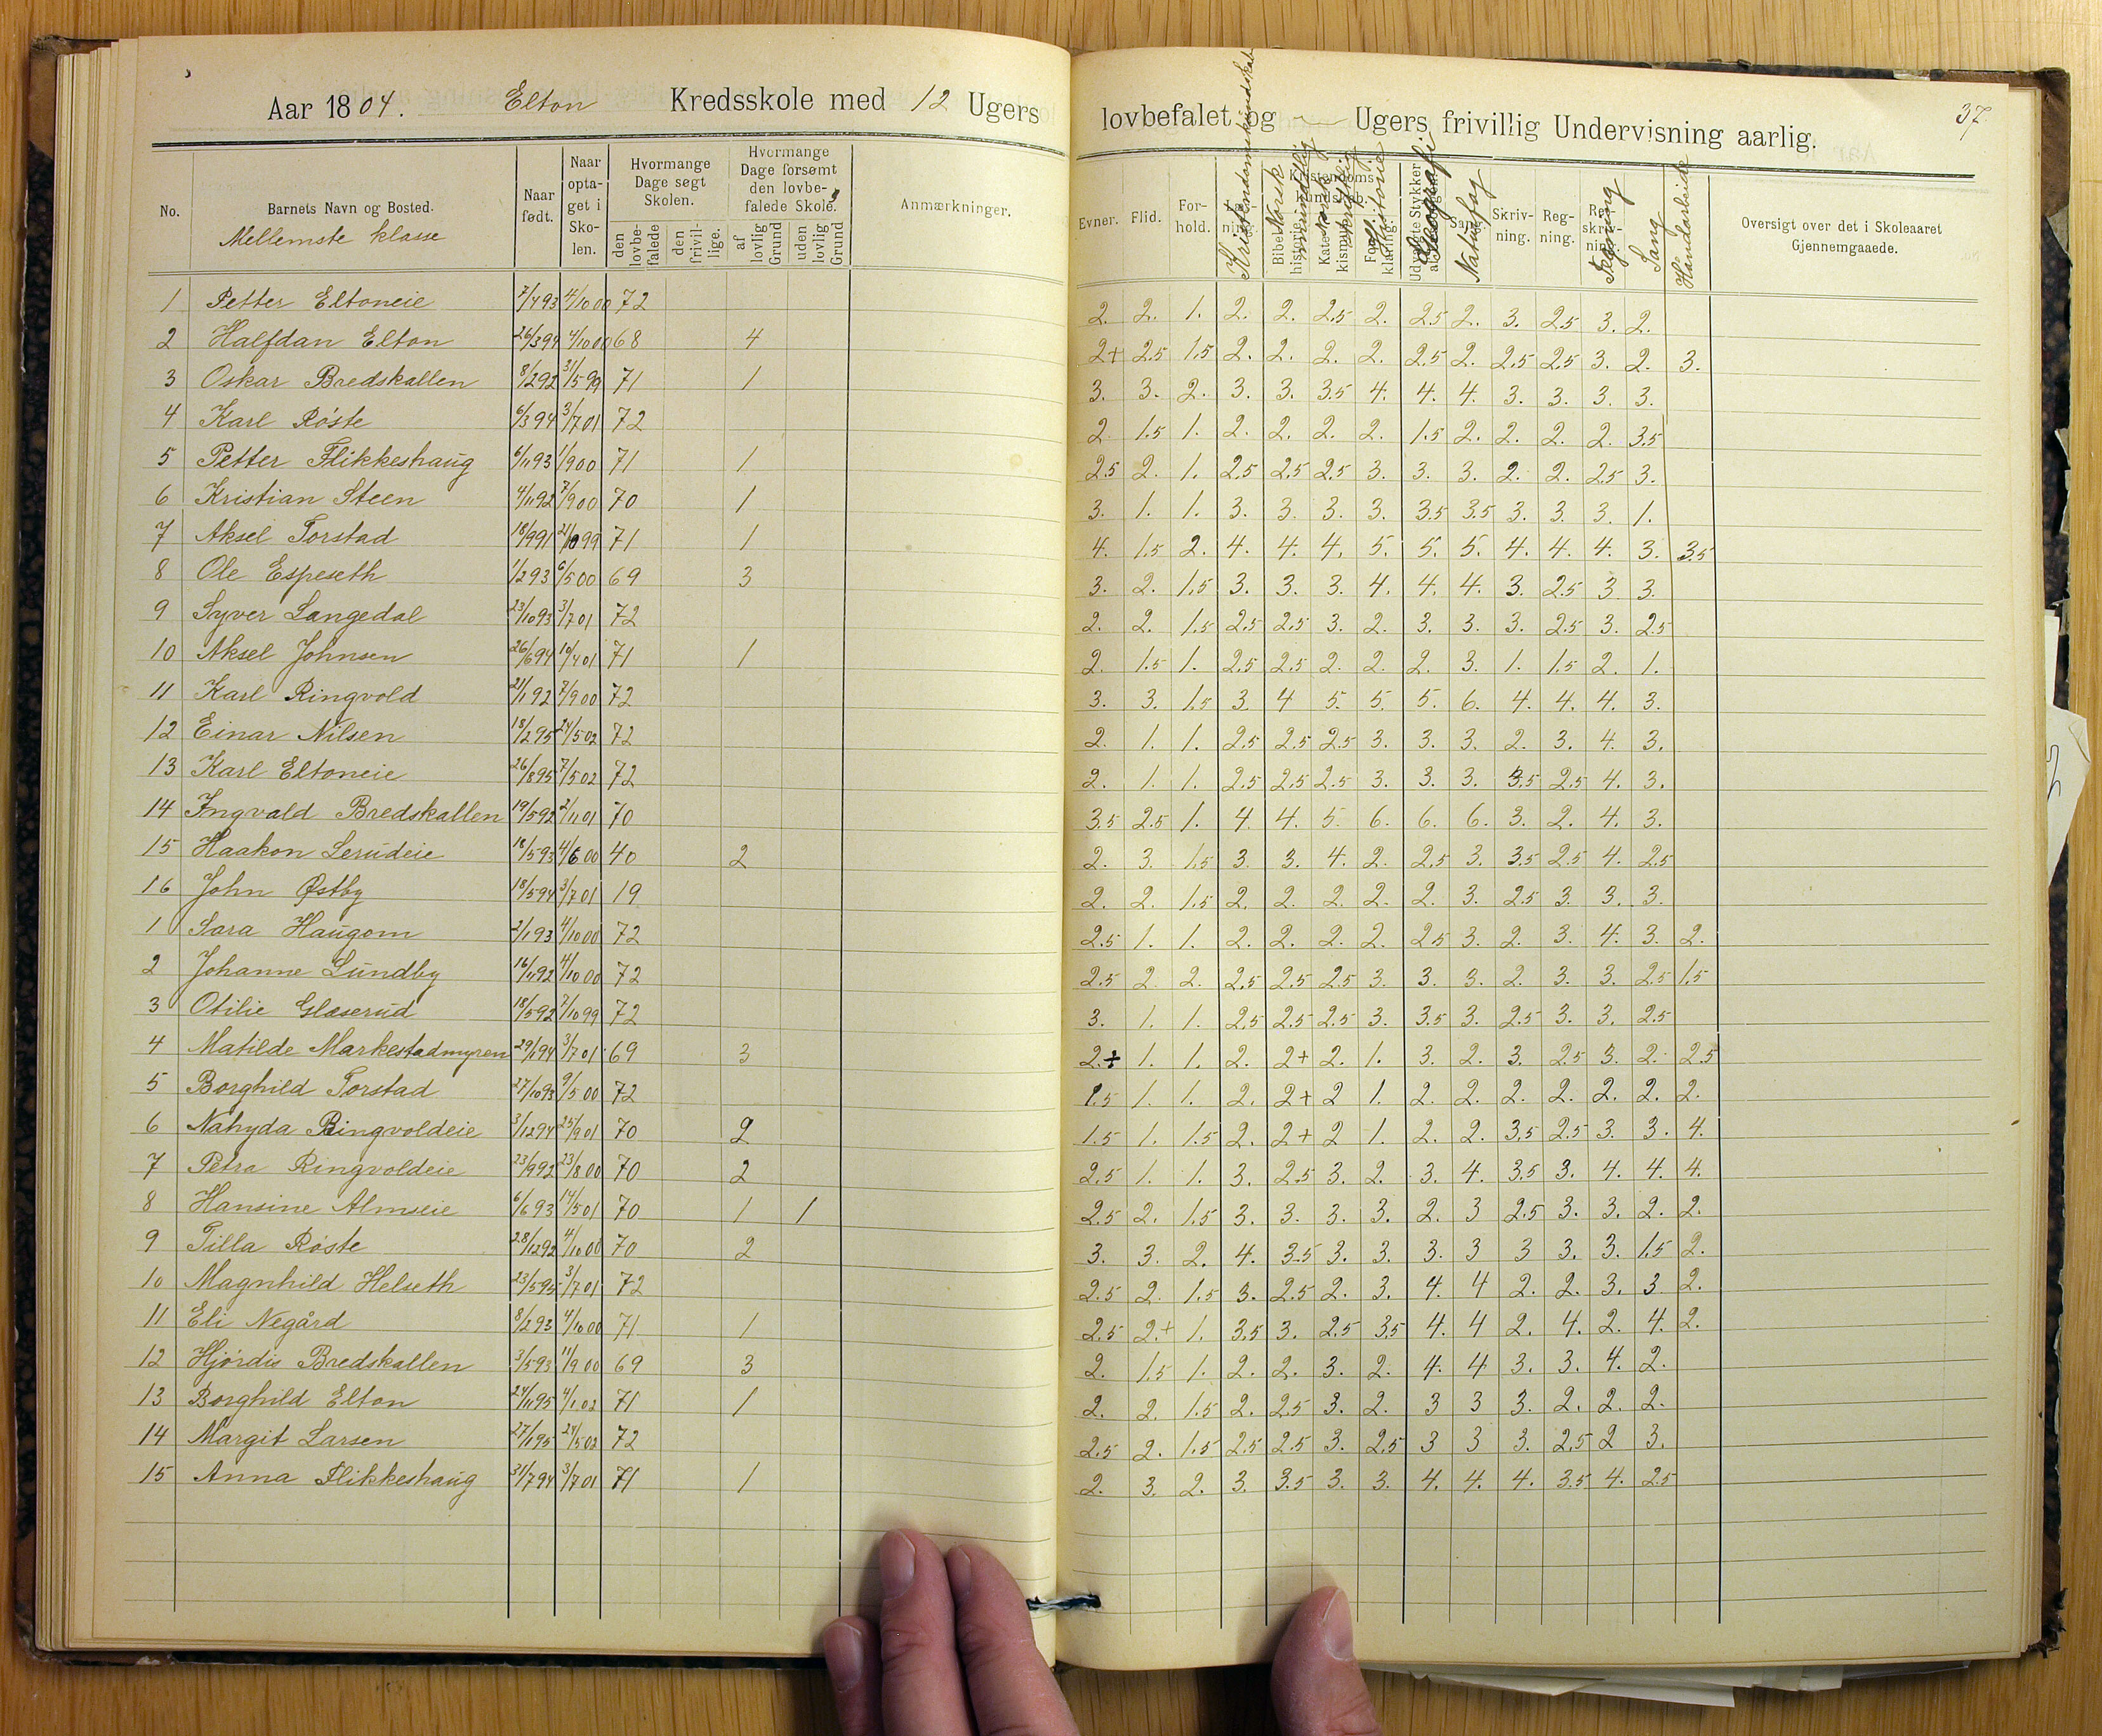 Aar 1804. Elton Kredsskole med 12 Ugers lovbefalet og — Ugers frivillig Undervisning aarlig. 37
No. Barnets Navn og Bosted. Naar født. Naar optaget i Skolen. Hvormange Dage søgt Skolen. den lovbefalede den frivillige. Hvormange Dage forsømt den lovbefalede Skole. af lovlig Grund uden lovlig Grund Anmærkninger. Evner. Flid. Forhold. Kristendomskundskab Norsk mundtlig Norsk skriftlig Historie Geografi Naturfag Skrivning. Regning. Tegning Sang Haandarbeide Oversigt over det i Skoleaaret Gjennemgaaede.
Mellemste klasse
1 Petter Eltoneie 7/7 93 4/10 00 72 2. 2. 1. 2. 2. 2.5 2. 2.5 2. 3. 2.5 3. 2.
2 Halfdan Elton 26/3 94 4/10 00 68 4 2+ 2.5 1.5 2. 2. 2. 2. 2.5 2. 2.5 2.5 3. 2. 3.
3 Oskar Bredskallen 8/2 92 31/5 99 71 1 3. 3. 2. 3. 3. 3.5 4. 4. 4. 3. 3. 3. 3.
4 Karl Röste 6/3 94 3/7 01 72 2 1.5 1. 2. 2. 2. 2. 1.5 2. 2. 2. 2. 3.5
5 Petter Flikkeshaug 6/11 93 1/9 00 71 1 2.5 2. 1. 2.5 2.5 2.5 3. 3. 3. 2. 2. 2.5 3.
6 Kristian Steen 4/11 92 7/9 00 70 1 3. 1. 1. 3. 3. 3. 3. 3.5 3.5 3. 3. 3. 1.
7 Aksel Torstad 18/9 91 21/10 99 71 1 4. 1.5 2. 4. 4. 4. 5. 5. 5. 4. 4. 4. 3. 3.5
8 Ole Espeseth 1/2 93 6/5 00 69 3 3. 2. 1.5 3. 3. 3. 4. 4. 4. 3. 2.5 3 3.
9 Syver Langedal 23/10 93 3/7 01 72 2. 2. 1.5 2.5 2.5 3. 2. 3. 3. 3. 2.5 3. 2.5
10 Aksel Johnsen 26/6 94 10/4 01 71 1 2. 1.5 1. 2.5 2.5 2. 2. 2. 3. 1. 1.5 2. 1.
11 Karl Ringvold 21/1 92 7/9 00 72 3. 3. 1.5 3. 4 5. 5. 5. 6. 4. 4. 4. 3.
12 Einar Nilsen 18/2 95 24/5 02 72 2. 1. 1. 2.5 2.5 2.5 3. 3. 3. 2. 3. 4. 3.
13 Karl Eltoneie 26/8 95 7/5 02 72 2. 1. 1. 2.5 2.5 2.5 3. 3. 3. 3.5 2.5 4. 3.
14 Ingvald Bredskallen 19/5 92 2/11 01 70 3.5 2.5 1. 4. 4. 5. 6. 6. 6. 3. 2. 4. 3.
15 Haakon Lerudeie 18/5 93 4/6 00 40 2 2. 3. 1.5 3. 3. 4. 2. 2.5 3. 3.5 2.5 4. 2.5
16 John Østby 18/5 94 3/7 01 19 2. 2. 1.5 2. 2. 2. 2. 2. 3. 2.5 3. 3. 3.
1 Sara Haugom 2/1 93 4/10 00 72 2.5 1. 1. 2. 2. 2. 2. 2.5 3. 2. 3. 4. 3. 2.
2 Johanne Lundby 16/11 92 4/10 00 72 2.5 2 2. 2.5 2.5 2.5 3. 3. 3. 2. 3. 3. 2.5 1.5
3 Otilie Glæserud 18/5 92 7/10 99 72 3. 1. 1. 2.5 2.5 2.5 3. 3.5 3. 2.5 3. 3. 2.5
4 Matilde Markestadmyren 29/1 94 3/7 01 69 3 2+ 1. 1. 2. 2+ 2. 1. 3. 2. 3. 2.5 3. 2. 2.5
5 Borghild Torstad 27/10 93 9/5 00 72 1.5 1. 1. 2. 2+ 2 1. 2. 2. 2. 2. 2. 2. 2.
6 Nahyda Ringvoldeie 3/12 94 25/9 01 70 2 1.5 1. 1.5 2. 2+ 2 1. 2. 2. 3.5 2.5 3. 3. 4.
7 Petra Ringvoldeie 23/9 92 23/8 00 70 2 2.5 1. 1. 3. 2.5 3. 2. 3. 4. 3.5 3. 4. 4. 4.
8 Hansine Almseie 6/6 93 14/5 01 70 1 1 2.5 2. 1.5 3. 3. 3. 3. 2. 3 2.5 3. 3. 2. 2.
9 Tilla Röste 28/12 92 4/10 00 70 2 3. 3. 2. 4. 3.5 3. 3. 3. 3 3 3. 3. 1.5 2.
10 Magnhild Helseth 23/5 95 3/7 01 72 2.5 2 1.5 3. 2.5 2. 3. 4. 4 2. 2. 3. 3 2.
11 Eli Negård 8/2 93 4/10 00 71 1 2.5 2.+ 1. 3.5 3. 2.5 3.5 4. 4 2. 4. 2. 4. 2.
12 Hjördis Bredskallen 3/5 93 11/9 00 69 3 2. 1.5 1. 2. 2. 3. 2. 4. 4 3. 3. 4. 2.
13 Borghild Elton 24/11 95 4/1 02 71 1 2. 2. 1.5 2. 2.5 3. 2. 3 3 3. 2. 2. 2.
14 Margit Larsen 27/1 95 24/5 02 72 2.5 2. 1.5 2.5 2.5 3. 2.5 3 3 3. 2.5 2 3.
15 Anna Flikkeshaug 31/7 94 3/7 01 71 1 2. 3. 2. 3. 3.5 3. 3. 4. 4. 4. 3.5 4. 2.5